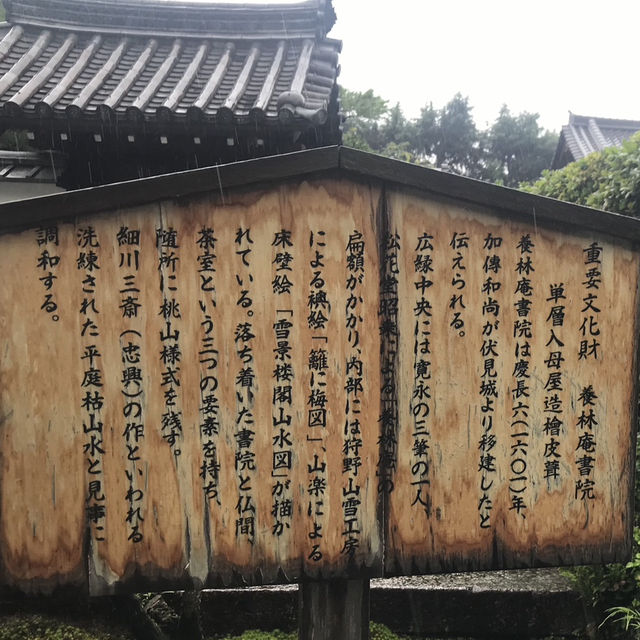 重要文化財　養林庵書院
単層入母屋造檜皮葺
養林庵書院は慶長六(一六〇一)年、
加傳和尚が伏見城より移建したと
伝えられる。
広縁中央には寛永の三筆の一人
松花堂昭乗による養林庵の
扁額がかかり、内部には狩野山雪工房
による襖絵「籬に梅図」、山楽による
床壁絵「雪景楼閣山水図」が描か
れている。落ち着いた書院と仏間、
茶室という三つの要素を持ち、
随所に桃山様式を残す。
細川三斎(忠興)の作といわれる
洗練された平庭枯山水と見事に
調和する。